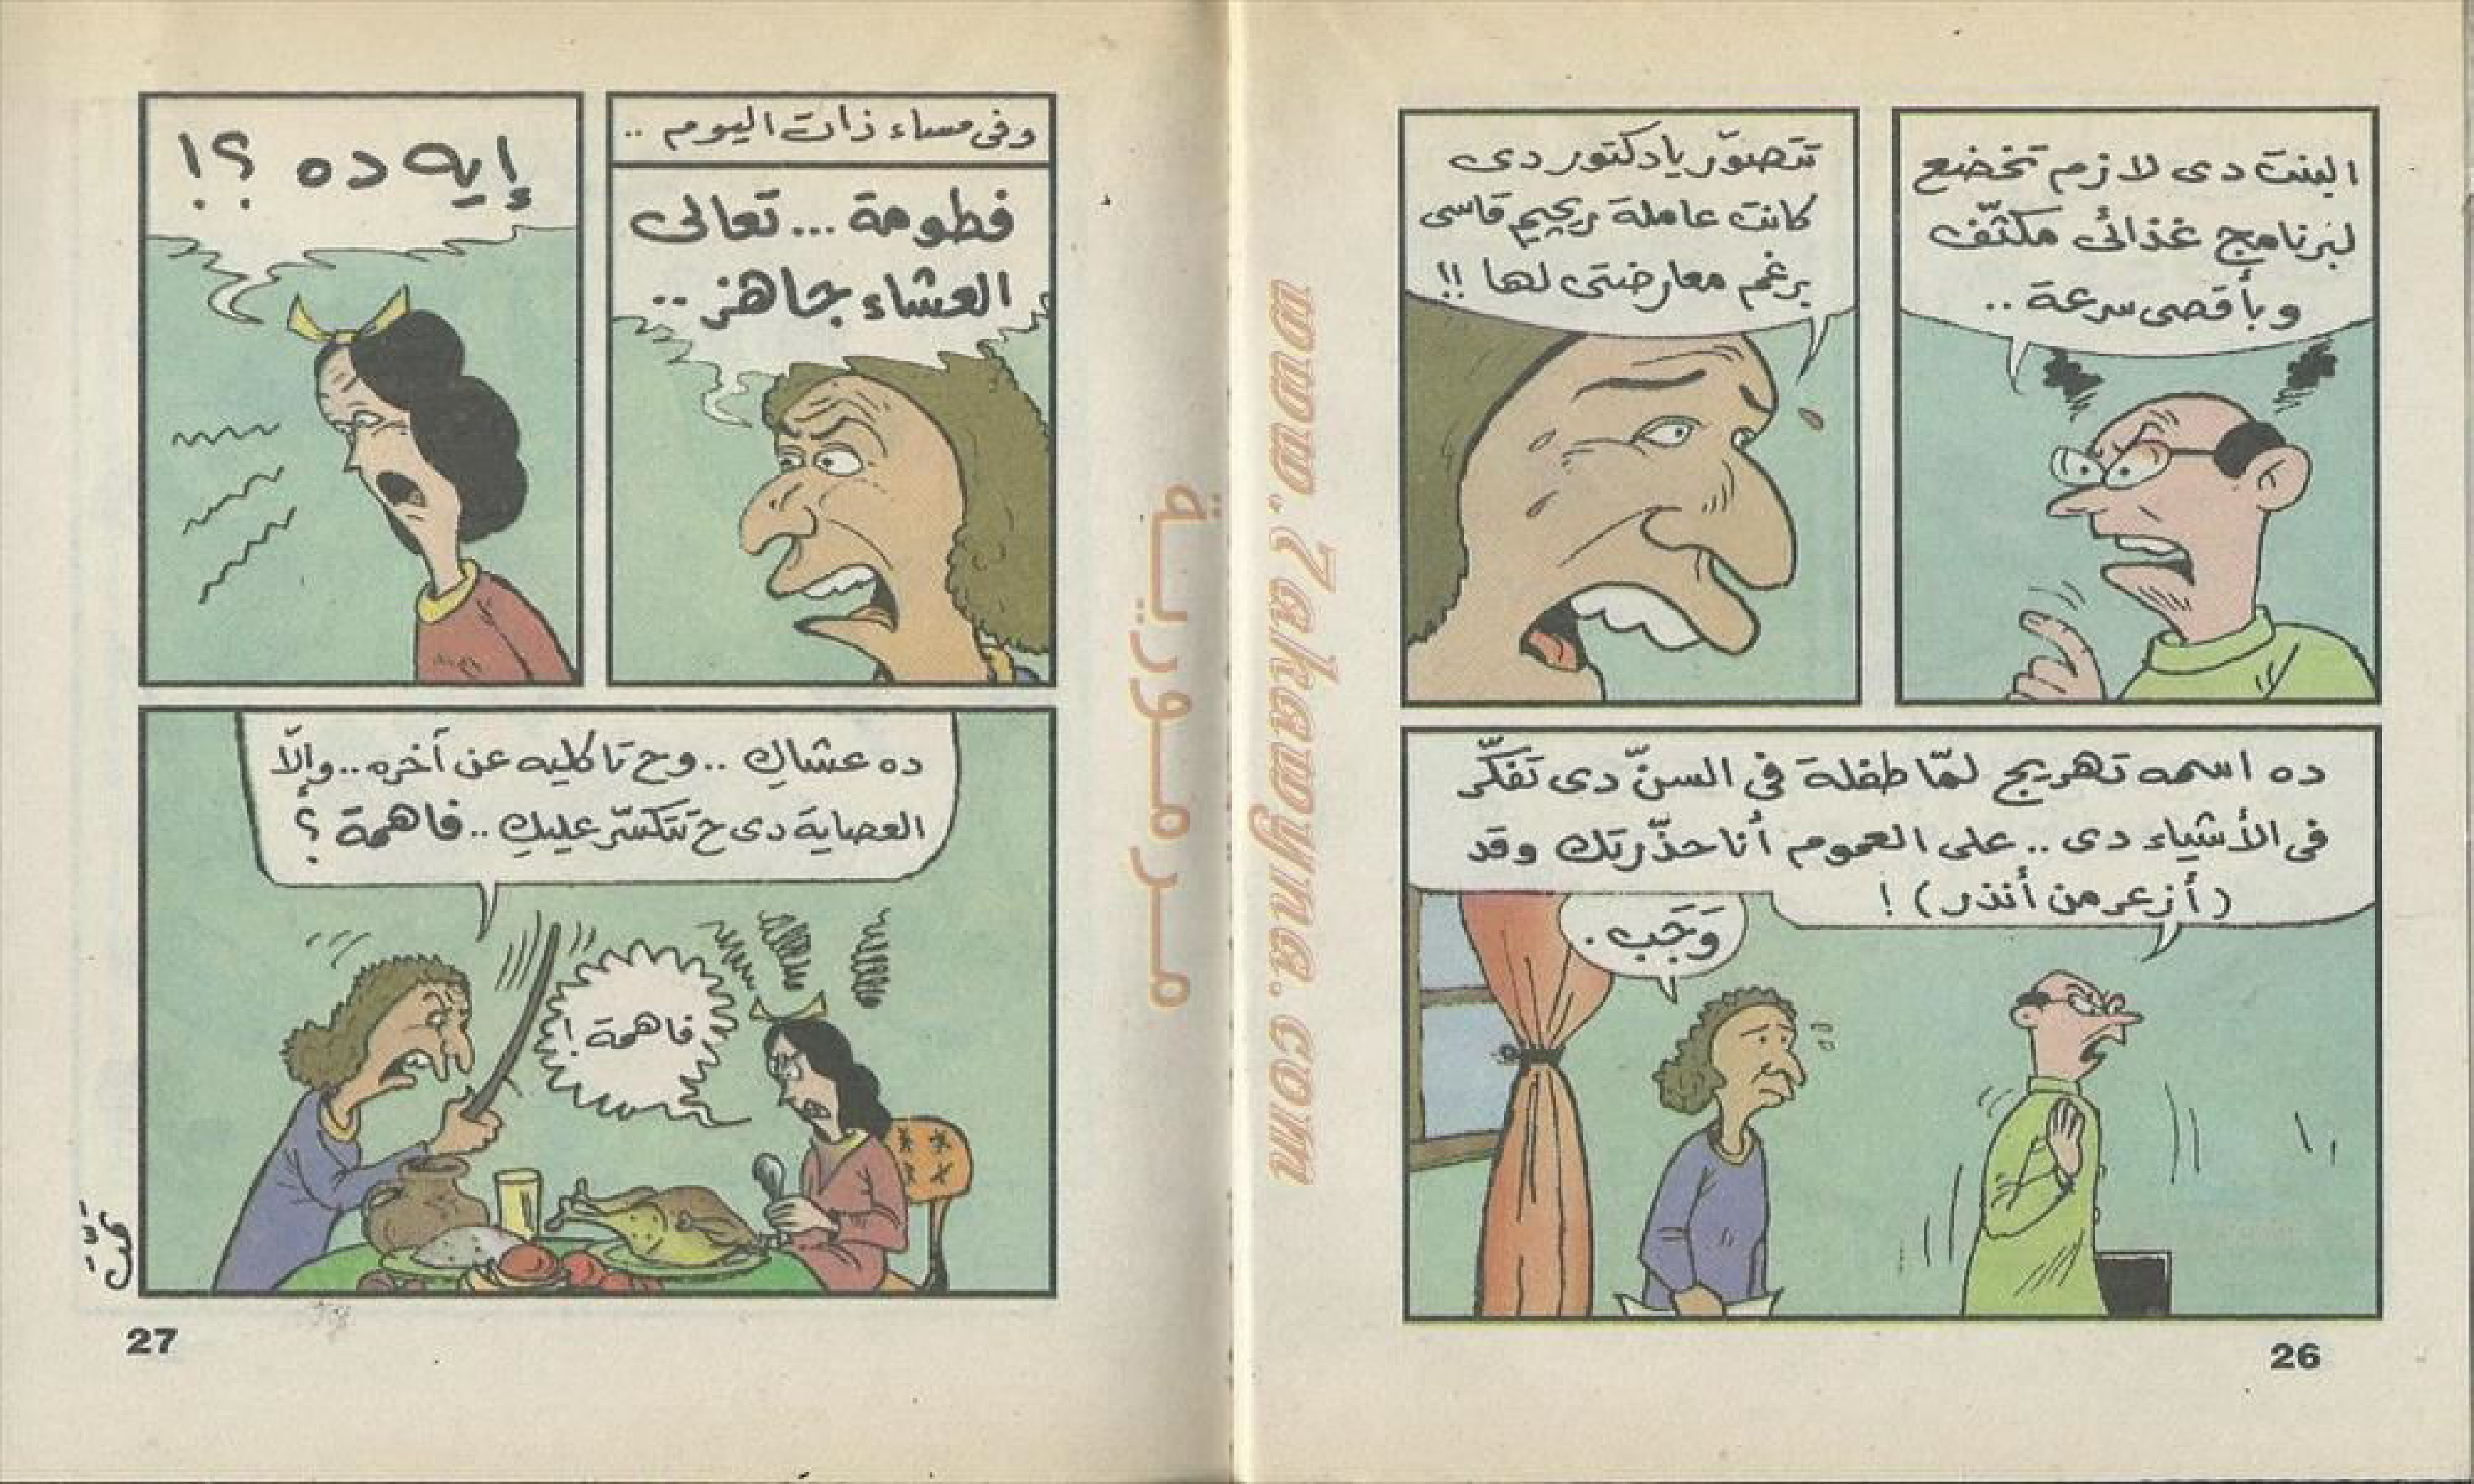 البنت دى لازم تخضع
لبرنامج غذائى مكثّف
وبأقصى سرعة ..
تتصوّر يا دكتور دى
كانت عاملة ريچيم قاسى
برغم معارضتى لها !!
ده اسمه تهريج لمّا طفلة فى السنّ دى تفكّر
فى الأشياء دى .. على العموم أنا حذّرتك وقد
(أزعر من أنذر) !
وَجَب .
26
وفى مساء ذات اليوم ..
فطومة ... تعالى
العشاء جاهز ..
إيه ده ؟!
ده عشاكِ .. وح تاكليه عن آخره .. وإلّا
العصاية دى ح تتكسّر عليكِ .. فاهمة ؟
فاهمة !
27
مرمورية
www.7akawyna.com